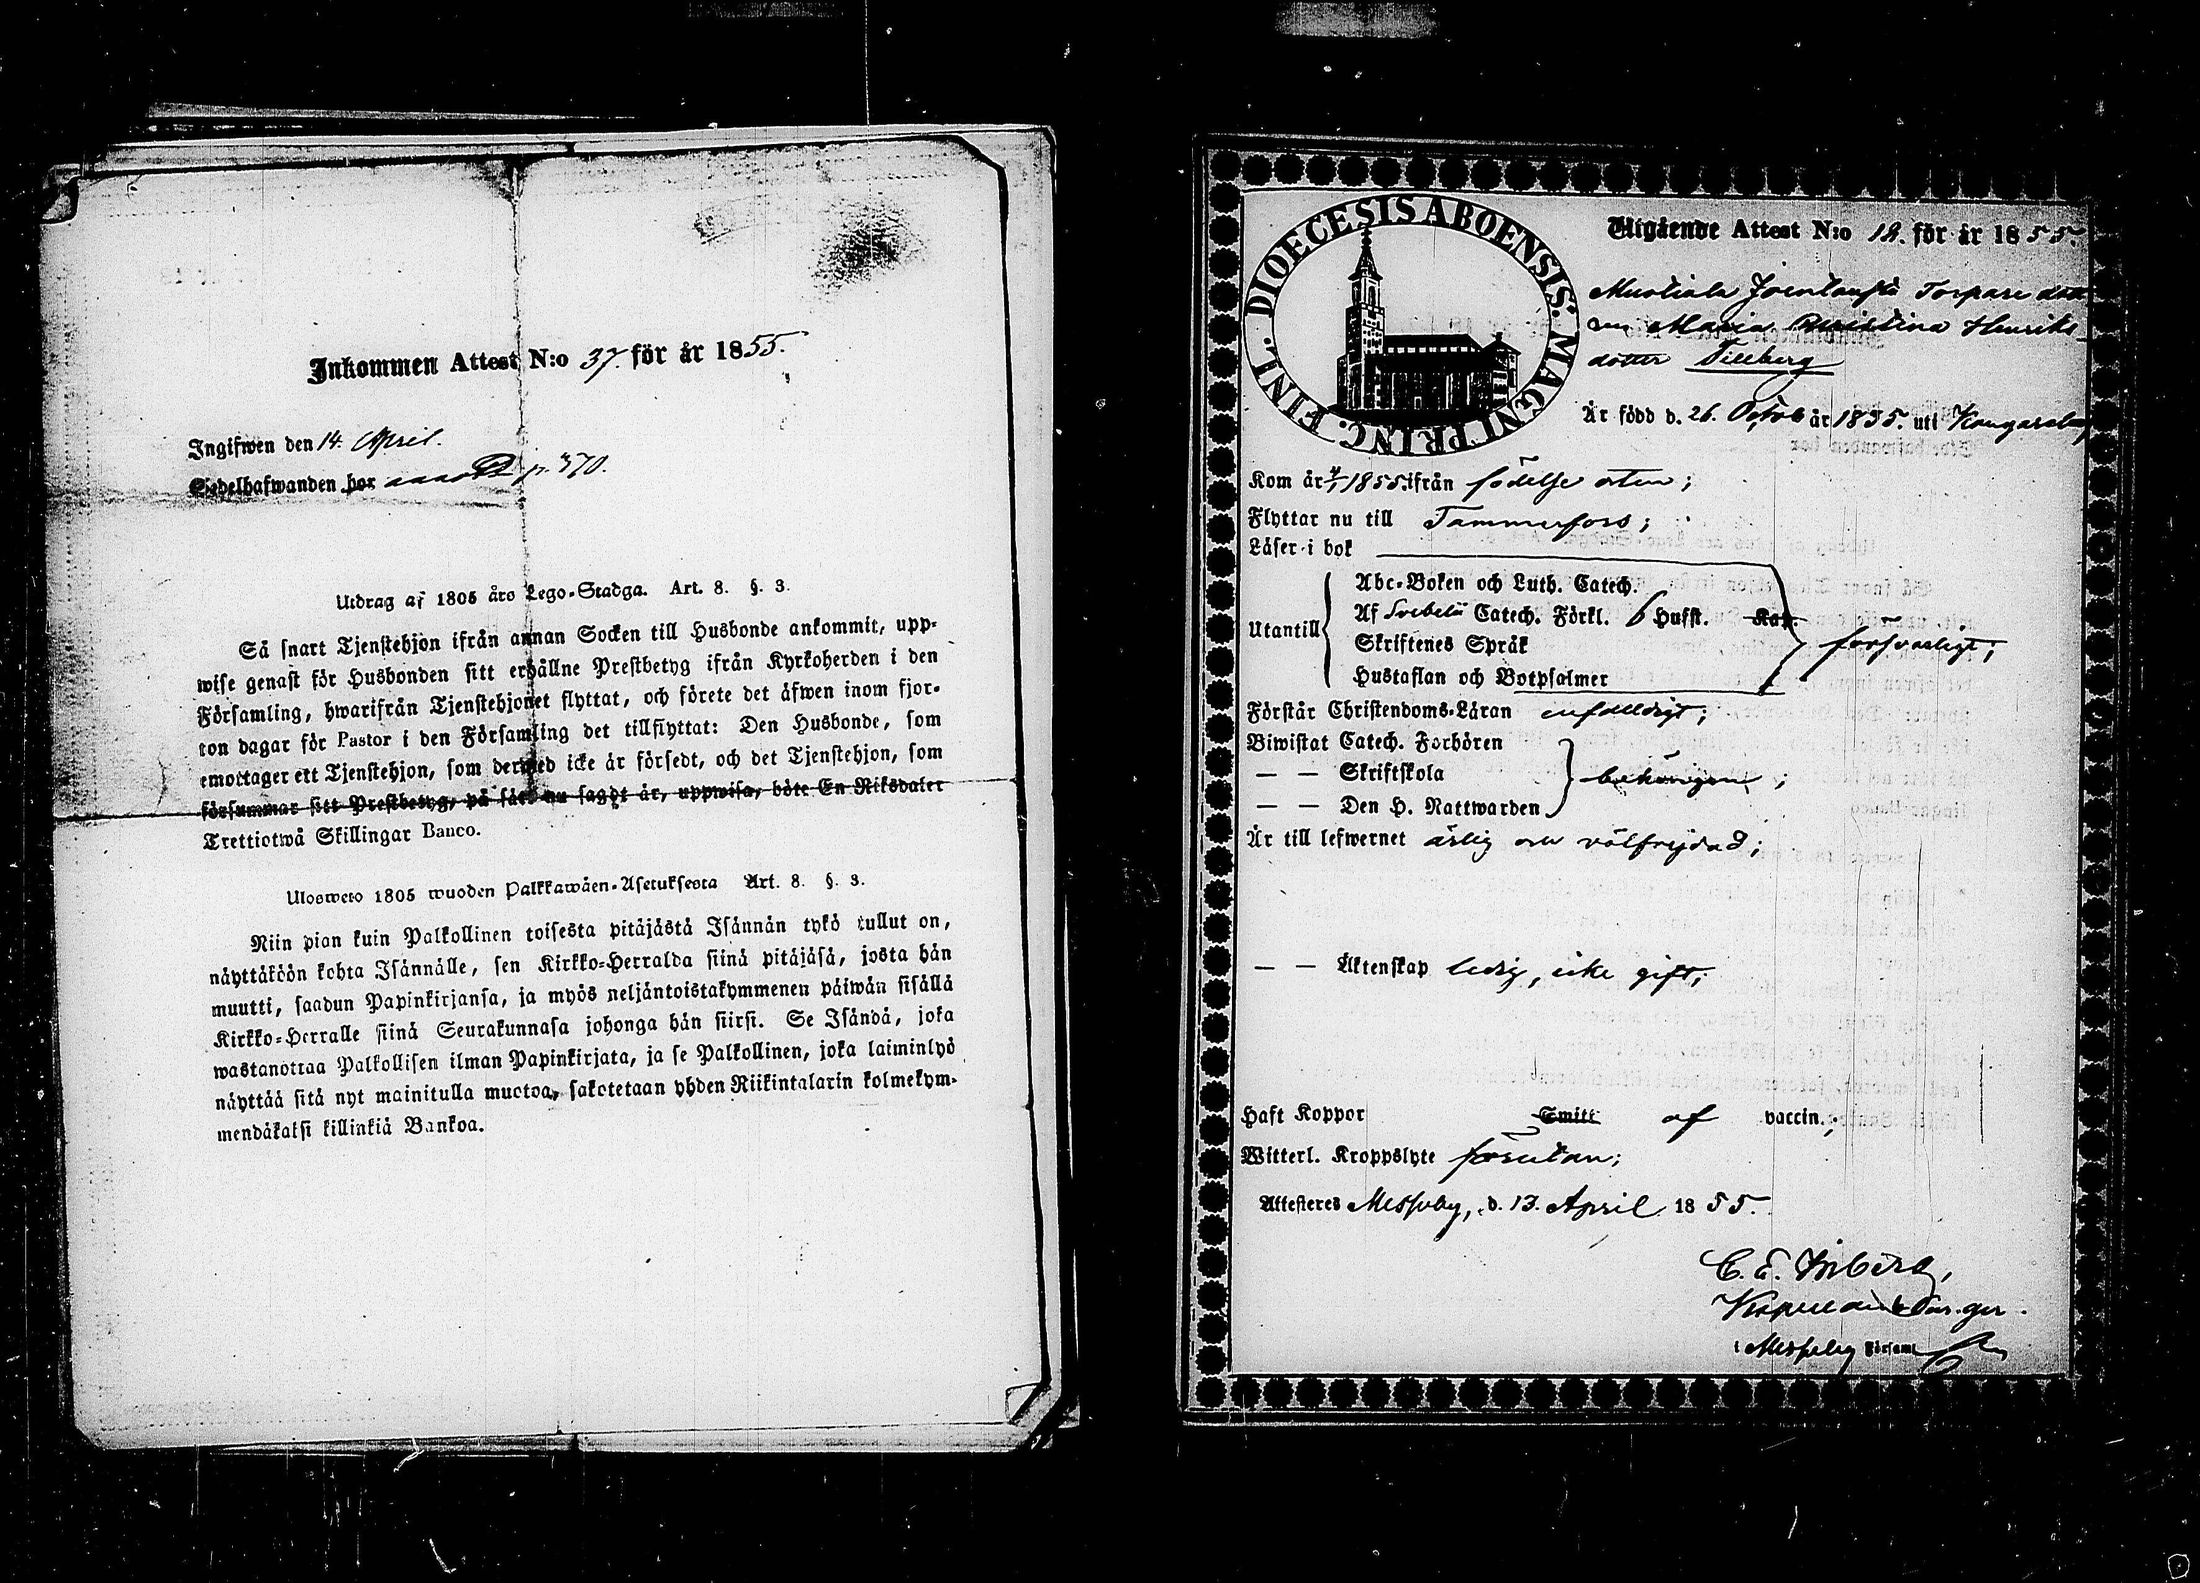 Inkommen Attest N:o 37. för år 1855.
Ingifwen den 14. April.
Sedelhafwanden bor p. 370.
Utdrag af 1805 års Lego-Stadga. Art. 8. §. 3.
Så snart Tjenstehjon ifrån annan Socken till Husbonde ankommit, upp-
wise genast för Husbonden sitt erhållne Prestbetyg ifrån Kyrkoherden i den
Församling, hwarifrån Tjenstehjonet flyttat, och förete det äfwen inom fjor-
ton dagar för Pastor i den Församling det tillflyttat: Den Husbonde, som
emottager ett Tjenstehjon, som dermed icke är försedt, och det Tjenstehjon, som
försummar sitt Prestbetyg, på sätt nu sagdt är, uppwisa, böte En Riksdaler
Trettiotwå Skillingar Banco.
Ulosweto 1805 wuoden Palkkawäen-Asetuksesta Art. 8. §. 3.
Niin pian kuin Palkollinen toisesta pitäjästä Isännän tykö tullut on,
näyttäköön kohta Isännälle, sen Kirkko-Herralda siinä pitäjäsä, josta hän
muutti, saadun Papinkirjansa, ja myös neljäntoistakymmenen päiwän sisällä
Kirkko-Herralle siinä Seurakunnasa johonga hän siirsi. Se Isändä, joka
wastanottaa Palkollisen ilman Papinkirjata, ja se Palkollinen, joka laiminlyö
näyttää sitä nyt mainitulla muotoa, sakotetaan yhden Riikintalarin kolmekym-
mendäkaksi killinkiä Bankoa.
DIOECESIS ABOENSIS. MAGNI PRINC. FINL.
Utgående Attest N:o 18. för år 1855.
Mustiala Torpare dott
Maria Christina Henriks
dotter Tillberg
Är född d. 26. Octob år 1835. uti Kangasala
Kom år 1855 ifrån födelse orten;
Flyttar nu till Tammerfors;
Läser i bok
Utantill
Abc-Boken och Luth. Catech.
Af Svebelii Catech. Förkl. 6 Hufst. Kap.
Skriftenes Språk
Hustaflan och Botpsalmer
försvarligt;
Förstår Christendoms-Läran enfaldigt;
Biwistat Catech. Förhören
— — Skriftskola
— — Den H. Nattwarden
behörigen;
Är till lefwernet ärlig och välfrejdad;
— — Äktenskap ledig, icke gift;
Haft Koppor Smitt af vaccin.;
Witterl. Kroppslyte förutan;
Attesteres Messuby, d. 13. April 1855.
C. E.
i Messuby Församl